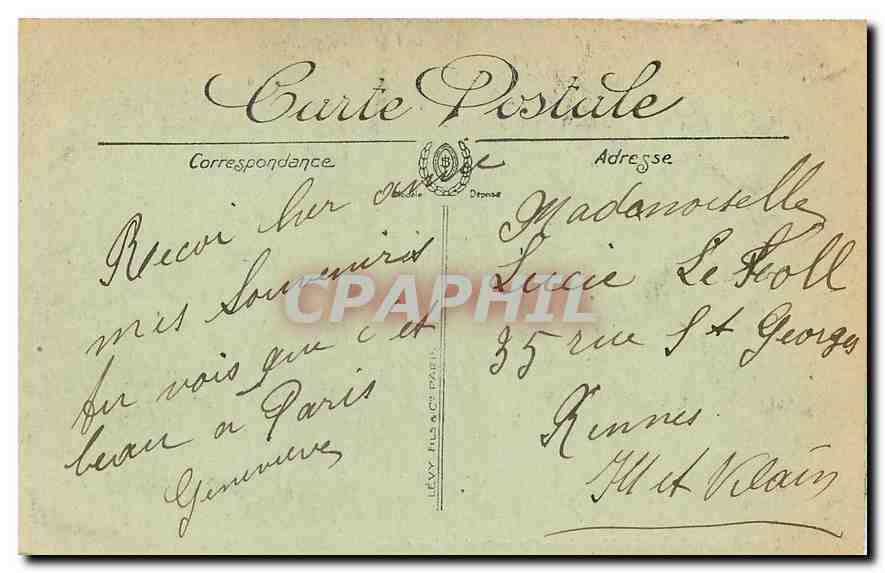 Carte Postale
Correspondance
Adresse
Modèle Déposé
Recoi cher amie
mes Souvenirs
tu vois que c'et
beau a Paris
Genevieve
LÉVY FILS & Cie PARIS
Mademoiselle
Lucie Le
35 rue St Georges
Rennes
Ill et Vilain
CPAPHIL